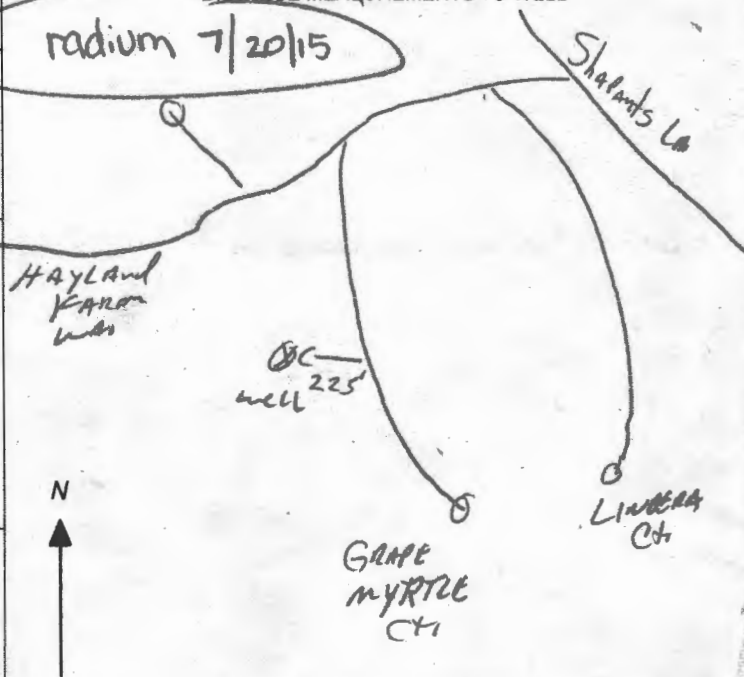 radium 7/20/15
Shapants Ln
HAYLAnd
FARM
225'
well
N
GRAPE
MYRTLE
Ct.
LINDERA
Ct.